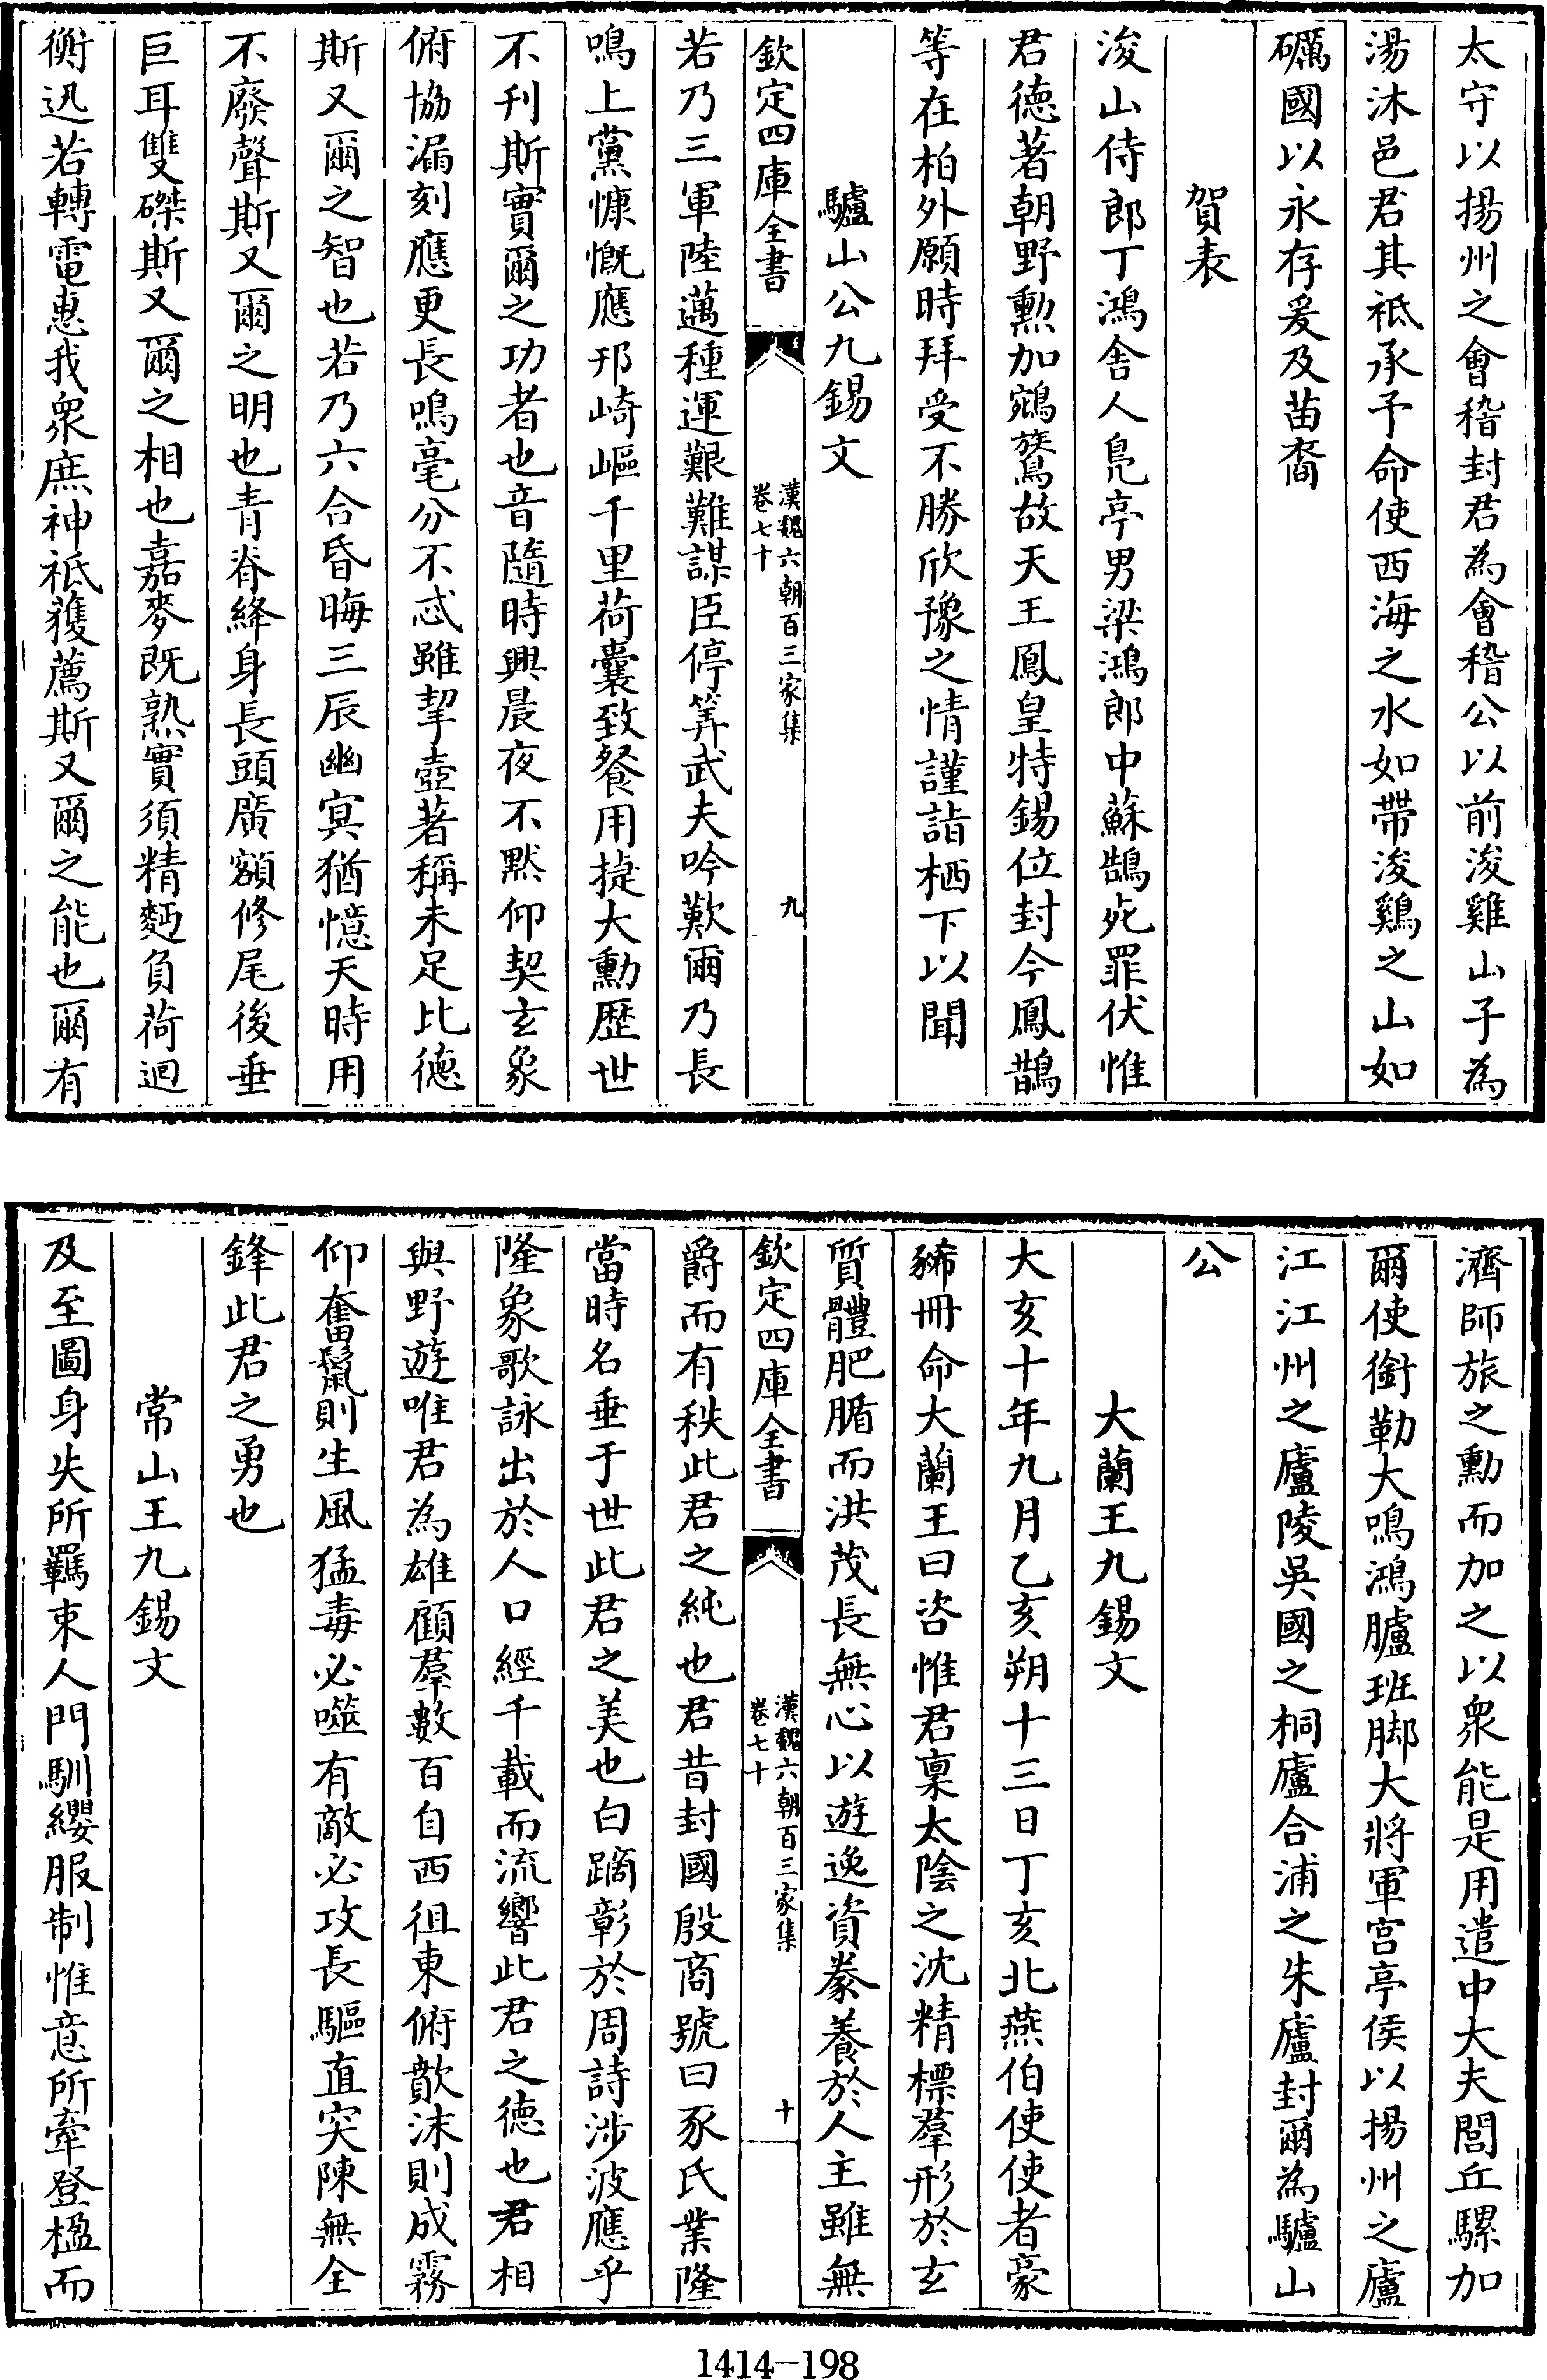 太守以揚州之會稽封君為會稽公以前浚雞山子為
湯沐邑君其祗承予命使西海之水如帶浚鷄之山如
礪國以永存爰及苗裔
賀表
浚山侍郎丁鴻舍人鳧亭男梁鴻郎中蘇鵠死罪伏惟
君德著朝野勲加鵷鷟故天王鳳皇特錫位封今鳳鵲
等在柏外願時拜受不勝欣豫之情謹詣栖下以聞
驢山公九錫文
欽定四庫全書
漢魏六朝百三家集
卷七十
九
若乃三軍陸邁種運艱難謀臣停筭武夫吟歎爾乃長
鳴上黨慷慨應邘崎嶇千里荷囊致餐用捷大勳歷世
不刋斯實爾之功者也音隨時興晨夜不黙仰契玄象
俯協漏刻應更長鳴毫分不忒雖挈壺著稱未足比德
斯又爾之智也若乃六合昏晦三辰幽冥猶憶天時用
不廢聲斯又爾之明也青脊絳身長頭廣額修尾後垂
巨耳雙磔斯又爾之相也嘉麥既熟實須精麪負荷迴
衡迅若轉電惠我衆庶神祗獲薦斯又爾之能也爾有
濟師旅之勳而加之以衆能是用遣中大夫閭丘騾加
爾使銜勒大鳴鴻臚班脚大將軍宫亭侯以揚州之廬
江江州之廬陵吳國之桐廬合浦之朱廬封爾為驢山
公
大蘭王九錫文
大亥十年九月乙亥朔十三日丁亥北燕伯使使者豪
豨冊命大蘭王曰咨惟君稟太陰之沈精標羣形於玄
質體肥腯而洪茂長無心以遊逸資豢養於人主雖無
欽定四庫全書
漢魏六朝百三家集
卷七十
十
爵而有秩此君之純也君昔封國殷商號曰豕氏業隆
當時名垂于世此君之美也白蹢彰於周詩涉波應乎
隆象歌詠出於人口經千載而流響此君之德也君相
與野遊唯君為雄顧羣數百自西徂東俯歕沫則成霧
仰奮鬣則生風猛毒必噬有敵必攻長驅直突陳無全
鋒此君之勇也
常山王九錫文
及至圖身失所羈束人門馴纓服制惟意所牽登楹而
1414-198